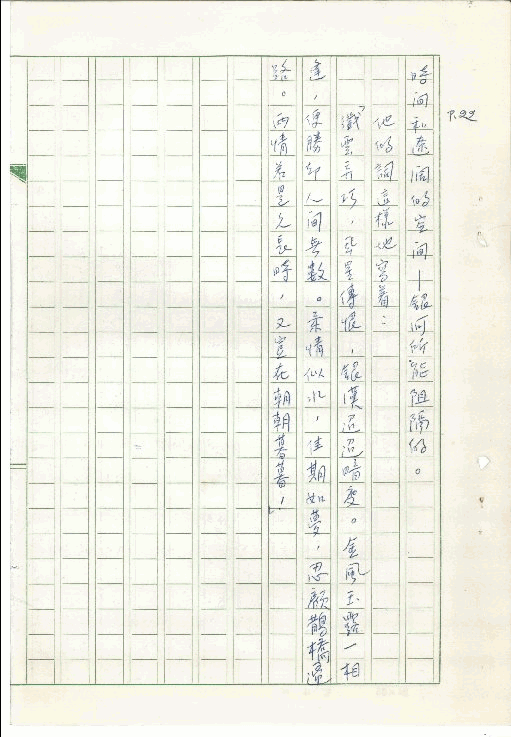 P.22
時间和遼闊的空间—銀河所能阻隔的。
他的詞這樣地寫着：
「纖雲弄巧，飛星傳恨，銀漢迢迢暗度。金風玉露一相
逢，便勝却人间無數。柔情似水，佳期如夢，忍顧鵲橋歸
路。兩情若是久長時，又豈在朝朝暮暮！」